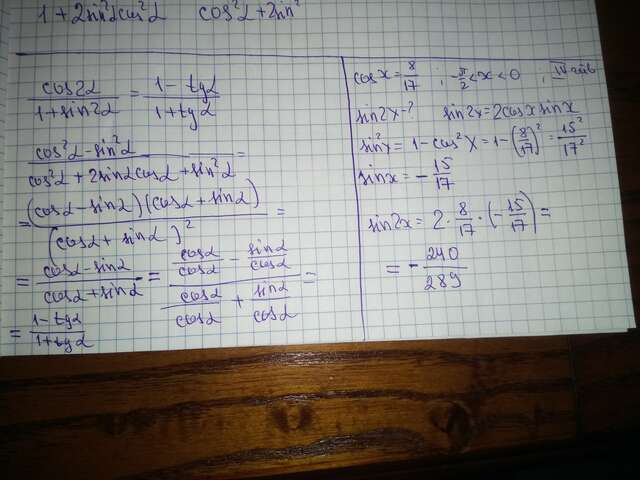 1 + 2sin²αcos²α   cos²α + 2sin²
cos2α / 1 + sin2α = 1 - tgα / 1 + tgα
cos²α - sin²α / cos²α + 2sinαcosα + sin²α =
= (cosα - sinα)(cosα + sinα) / (cosα + sinα)² =
= cosα - sinα / cosα + sinα = cosα/cosα - sinα/cosα / cosα/cosα + sinα/cosα =
= 1 - tgα / 1 + tgα
cosx = 8/17 ; -π/2 < x < 0 ; IV
sin2x - ?   sin2x = 2cosx sinx
sin²x = 1 - cos²x = 1 - (8/17)² = 15²/17²
sinx = - 15/17
sin2x = 2 · 8/17 · (- 15/17) =
= - 240/289